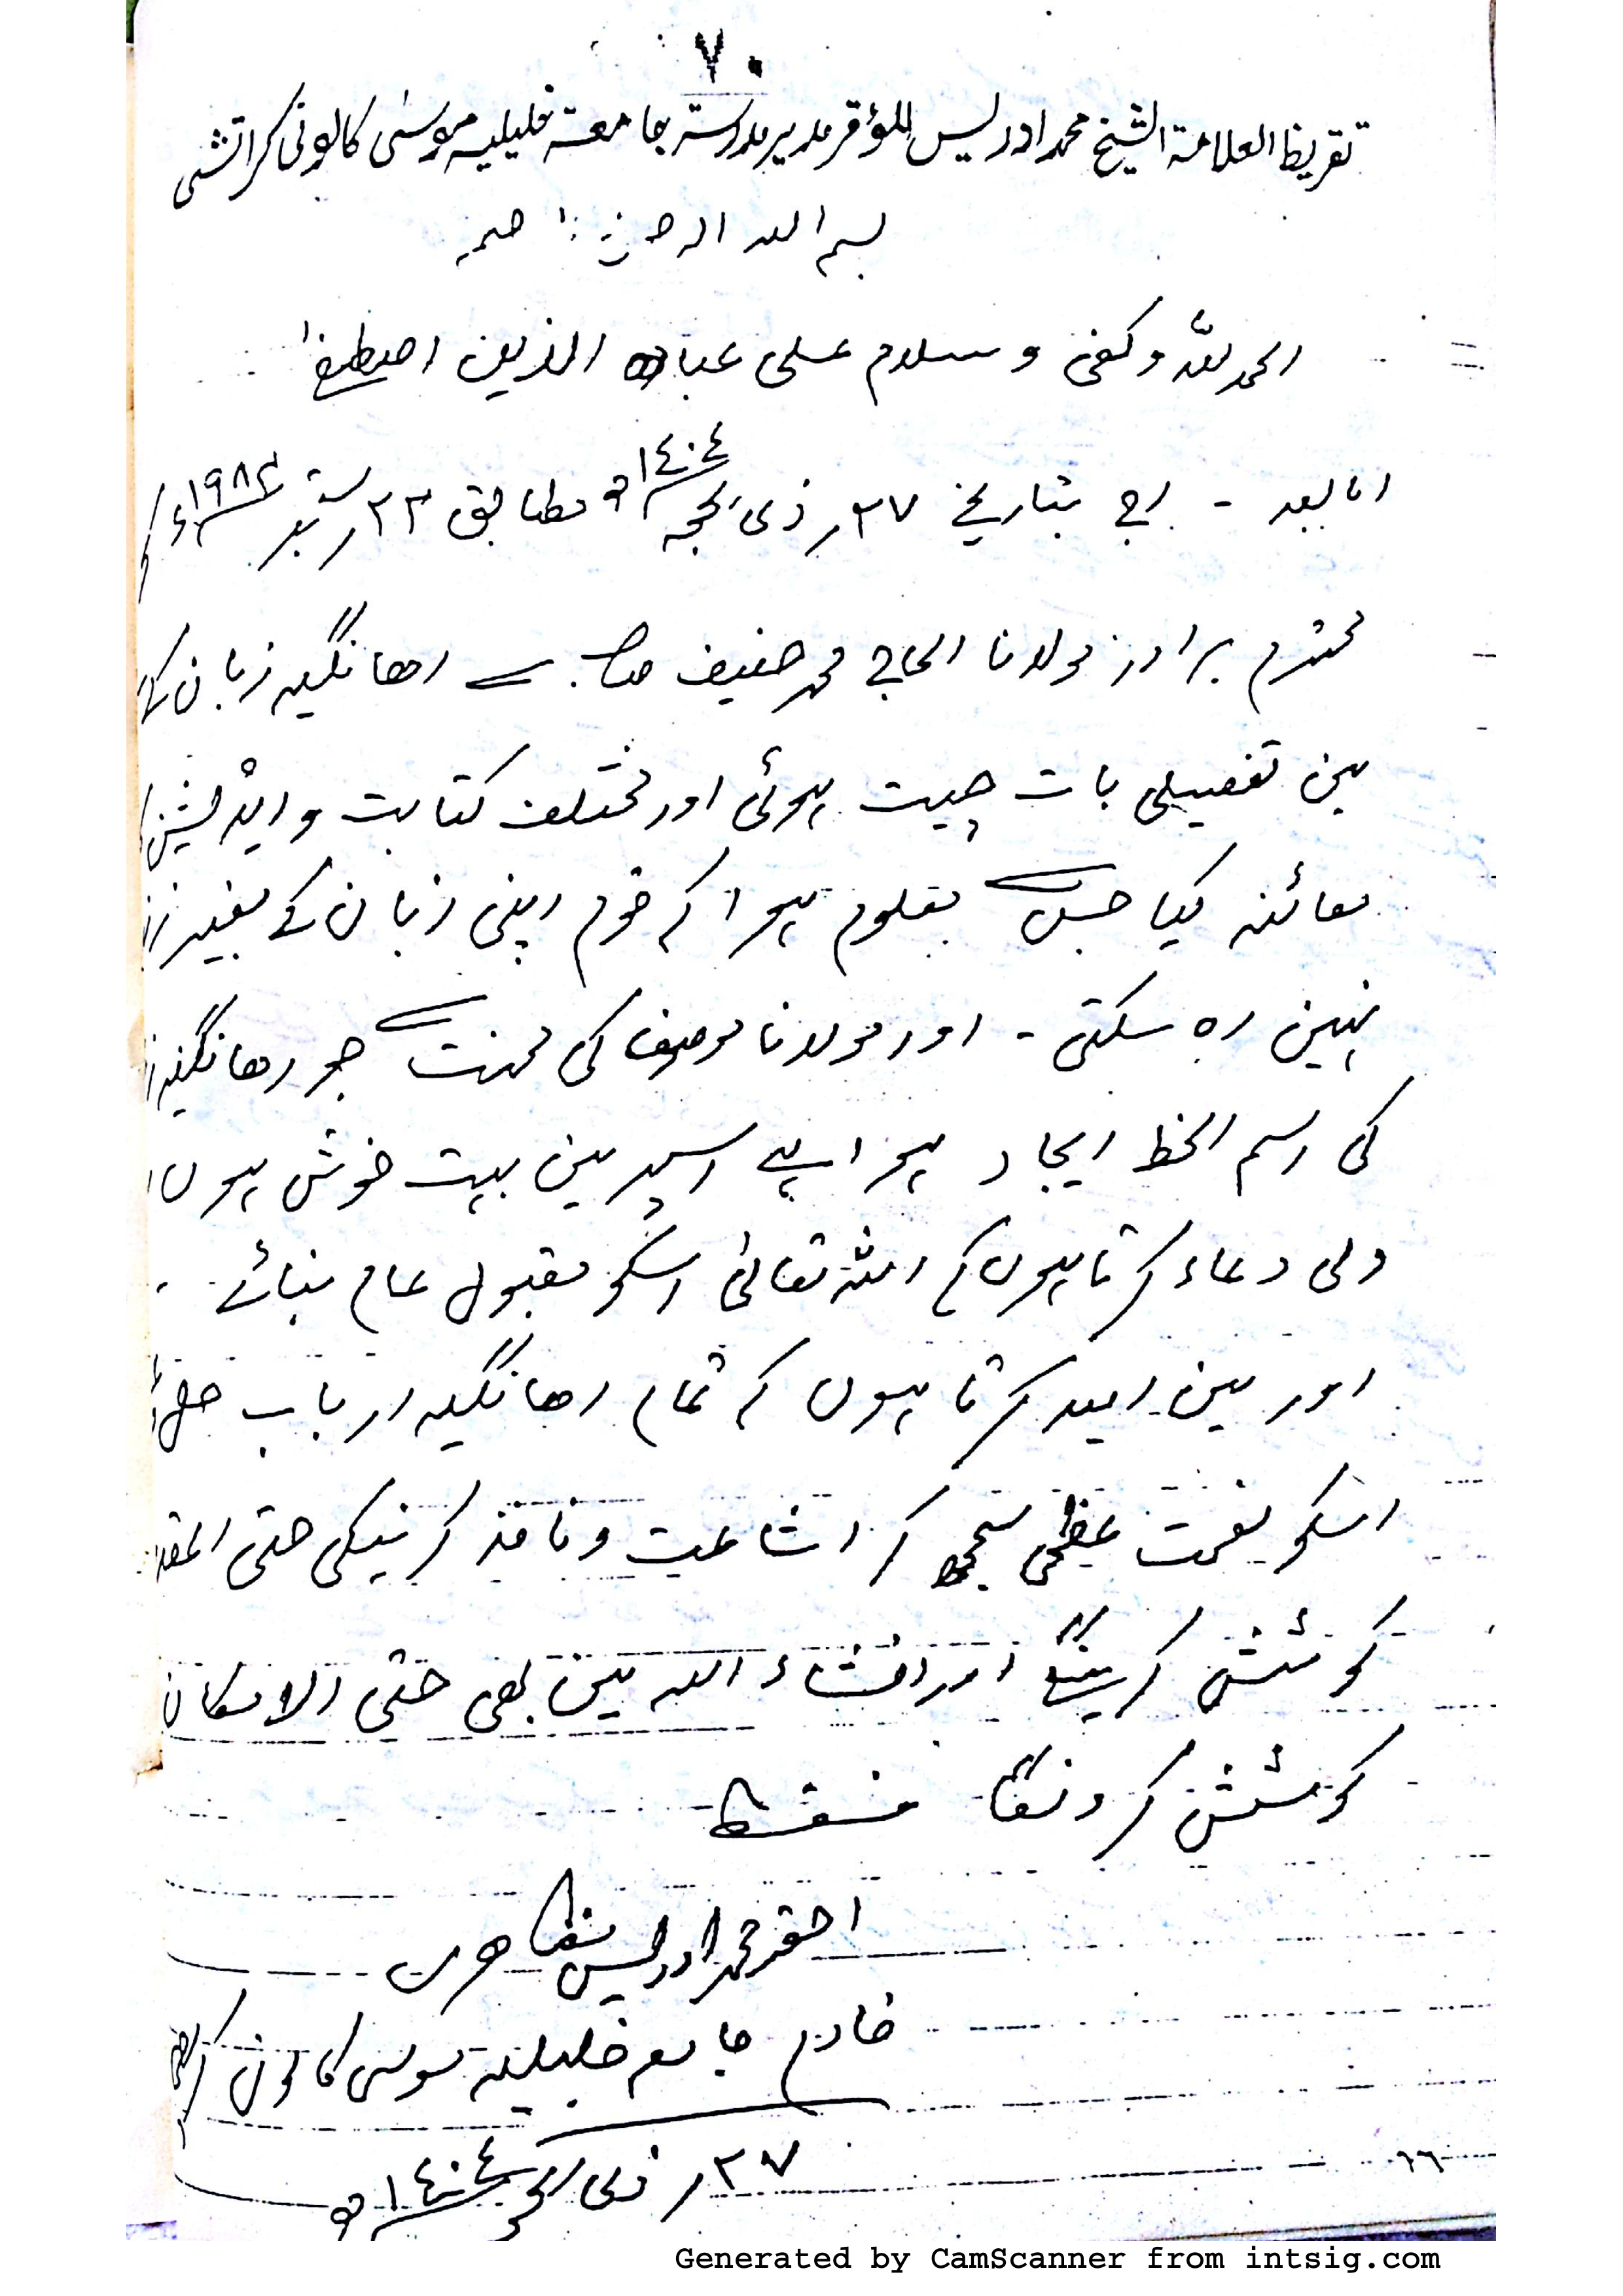 ٧٠
تقریظ العلامۃ الشیخ محمد ادریس المؤقر مدیر مدرستہ جامعتہ خلیلیہ موسیٰ کالونی کراتشی
بسم اللہ الرحمن الرحیم
الحمد للّٰہ وکفیٰ و سلام علی عبادہ الذین اصطفیٰ
اما بعد - اج بتاریخ ٢٧ر ذی الحجہ ١٤٠٤ھ مطابق ٢٣ر ستمبر ١٩٨٤ء کو
محترم برادر مولانا الحاج محمد حنیف صاحب سے رھانگیہ زبان کے
مین تفصیلی بات چیت ہوئی اور مختلف کتابت و ایڈیشن
معائنہ کیا جس سے معلوم ہوا کہ قوم اپنی زبان کے بغیر
نہین رہ سکتی - اور مولانا موصوف کی محنت سے جو رھانگیہ
کی رسم الخط ایجاد ہوا ہے اسپر مین بہت خوش ہوں
دلی دعاء کرتا ہوں کہ اللہ تعالیٰ اسکو مقبول عام بنائے -
اور مین امید کرتا ہوں کہ تمام رھانگیہ ارباب حل
اسکو نعمت عظمی سمجھ کر اشاعت و نافذ کرنیکی حتی المقد
کوشش کرینگے اور انشاء اللہ مین بھی حتی الامکان
کوشش کرونگا فقط
احقر محمد ادریس مظاھری
خادم جامعہ خلیلیہ موسی کالونی کراچی
٢٧ر ذی الحجہ ١٤٠٤ھ
٦٦
Generated by CamScanner from intsig.com